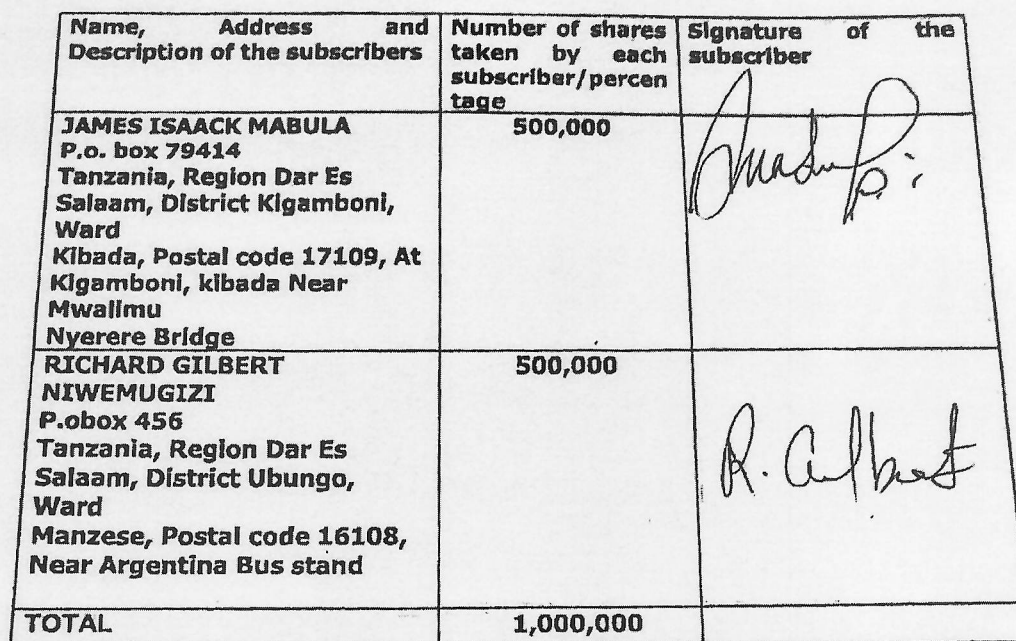 Name, Address and
Description of the subscribers
Number of shares
taken by each
subscriber/percen
tage
Signature of the
subscriber
JAMES ISAACK MABULA
P.o. box 79414
Tanzania, Region Dar Es
Salaam, District Kigamboni,
Ward
Kibada, Postal code 17109, At
Kigamboni, kibada Near
Mwalimu
Nyerere Bridge
500,000
RICHARD GILBERT
NIWEMUGIZI
P.obox 456
Tanzania, Region Dar Es
Salaam, District Ubungo,
Ward
Manzese, Postal code 16108,
Near Argentina Bus stand
500,000
R. Gilbert
TOTAL
1,000,000